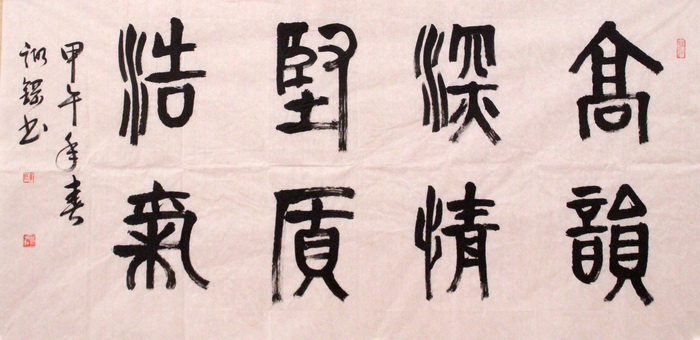 高韻
深情
堅質
浩氣
甲午年春
书